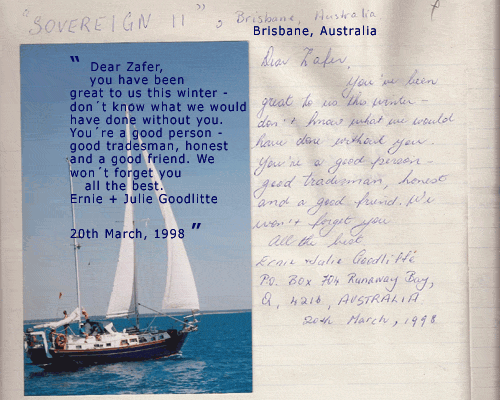 "SOVEREIGN II", Brisbane, Australia
Brisbane, Australia
"
Dear Zafer,
you have been
great to us this winter -
don´t know what we would
have done without you.
You´re a good person -
good tradesman, honest
and a good friend. We
won´t forget you
all the best.
Ernie + Julie Goodlitte
20th March, 1998 "
Dear Zafer,
You've been
great to us this winter -
don't know what we would
have done without you.
You're a good person -
good tradesman, honest
and a good friend. We
won't forget you
All the best
Ernie + Julie Goodliffe
P.O. Box 704 Runaway Bay,
Q, 4216, AUSTRALIA.
20th March, 1998